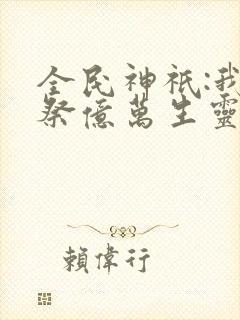 全民神祇:我
祭億萬生靈
賴偉行